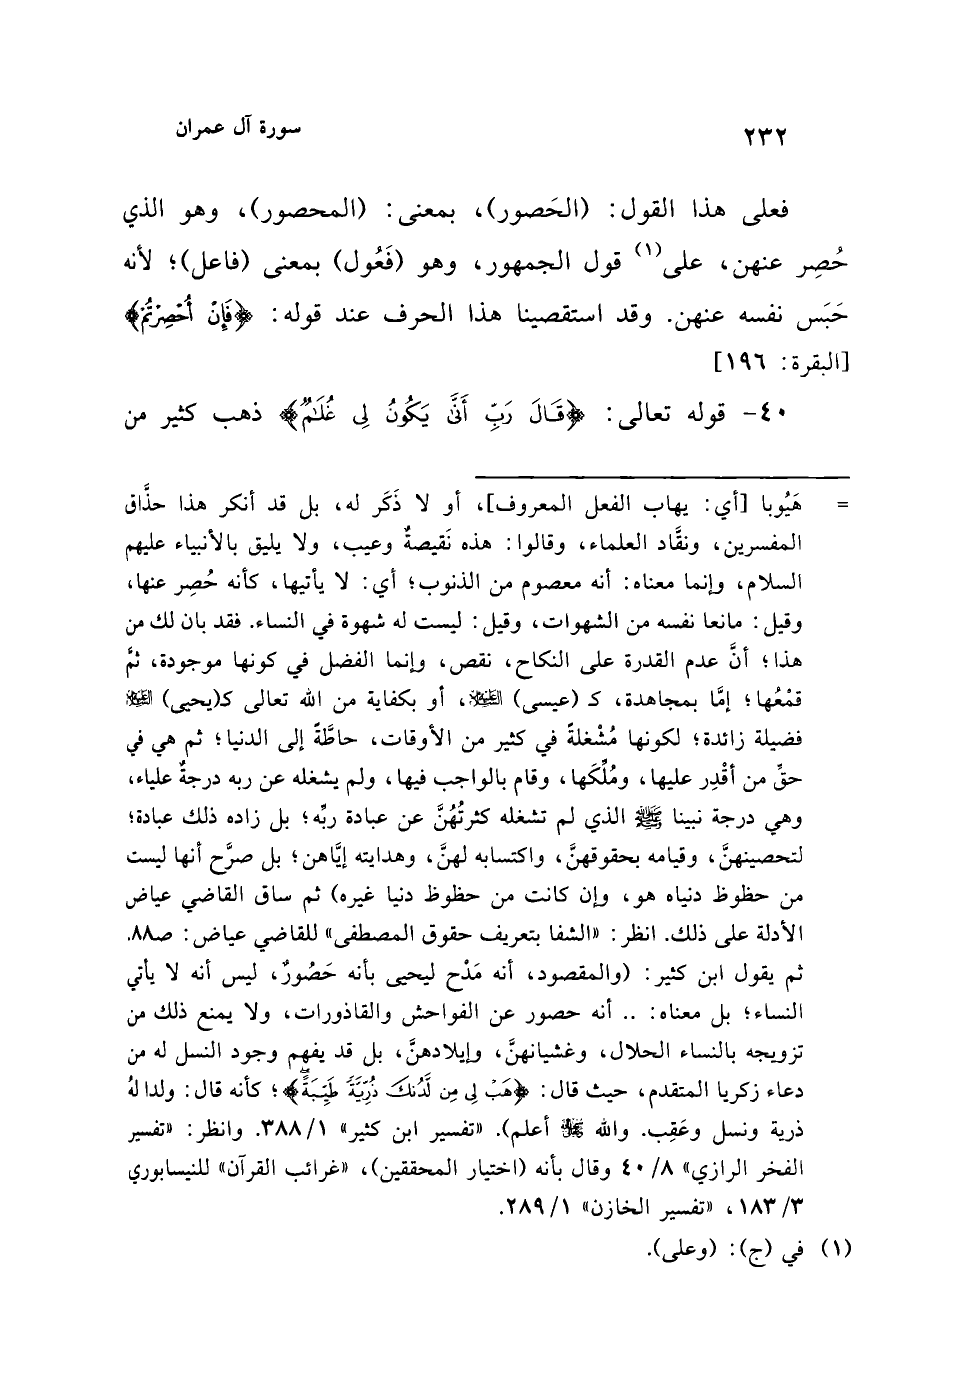 ٢٣٢ سورة آل عمران
فعلى هذا القول: (الحَصور)، بمعنى: (المحصور)، وهو الذي
حُصِر عنهن، على(١) قول الجمهور، وهو (فَعُول) بمعنى (فاعل)؛ لأنه
حَبَس نفسه عنهن. وقد استقصينا هذا الحرف عند قوله: ﴿فَإِنْ أُحْصِرْتُمْ﴾
[البقرة: ١٩٦]
٤٠- قوله تعالى: ﴿قَالَ رَبِّ أَنَّىٰ يَكُونُ لِى غُلَٰمٌ﴾ ذهب كثير من
= هَيُوبا [أي: يهاب الفعل المعروف]، أو لا ذَكَر له، بل قد أنكر هذا حذَّاق
المفسرين، ونقَّاد العلماء، وقالوا: هذه نَقيصةٌ وعيب، ولا يليق بالأنبياء عليهم
السلام، وإنما معناه: أنه معصوم من الذنوب؛ أي: لا يأتيها، كأنه حُصِر عنها،
وقيل: مانعا نفسه من الشهوات، وقيل: ليست له شهوة في النساء. فقد بان لك من
هذا؛ أنَّ عدم القدرة على النكاح، نقص، وإنما الفضل في كونها موجودة، ثمَّ
قمْعُها؛ إمَّا بمجاهدة، كـ (عيسى) عليه السلام، أو بكفاية من الله تعالى كـ(يحيى) عليه السلام
فضيلة زائدة؛ لكونها مُشْغلةً في كثير من الأوقات، حاطَّةً إلى الدنيا؛ ثم هي في
حقِّ من أقْدِر عليها، ومُلِّكَها، وقام بالواجب فيها، ولم يشغله عن ربه درجةٌ علياء،
وهي درجة نبينا ﷺ الذي لم تشغله كثرتُهُنَّ عن عبادة ربِّه؛ بل زاده ذلك عبادة؛
لتحصينهنَّ، وقيامه بحقوقهنَّ، واكتسابه لهنَّ، وهدايته إيَّاهن؛ بل صرَّح أنها ليست
من حظوظ دنياه هو، وإن كانت من حظوظ دنيا غيره) ثم ساق القاضي عياض
الأدلة على ذلك. انظر: «الشفا بتعريف حقوق المصطفى» للقاضي عياض: ص٨٨.
ثم يقول ابن كثير: (والمقصود، أنه مَدْح ليحيى بأنه حَصُورٌ، ليس أنه لا يأتي
النساء؛ بل معناه: .. أنه حصور عن الفواحش والقاذورات، ولا يمنع ذلك من
تزويجه بالنساء الحلال، وغشيانهنَّ، وإيلادهنَّ، بل قد يفهم وجود النسل له من
دعاء زكريا المتقدم، حيث قال: ﴿هَبْ لِى مِن لَّدُنكَ ذُرِّيَّةً طَيِّبَةً﴾؛ كأنه قال: ولدا لهُ
ذرية ونسل وعَقِب. والله ﷻ أعلم). «تفسير ابن كثير» ١/ ٣٨٨. وانظر: «تفسير
الفخر الرازي» ٨/ ٤٠ وقال بأنه (اختيار المحققين)، «غرائب القرآن» للنيسابوري
٣/ ١٨٣، «تفسير الخازن» ١/ ٢٨٩.
(١) في (ج): (وعلى).